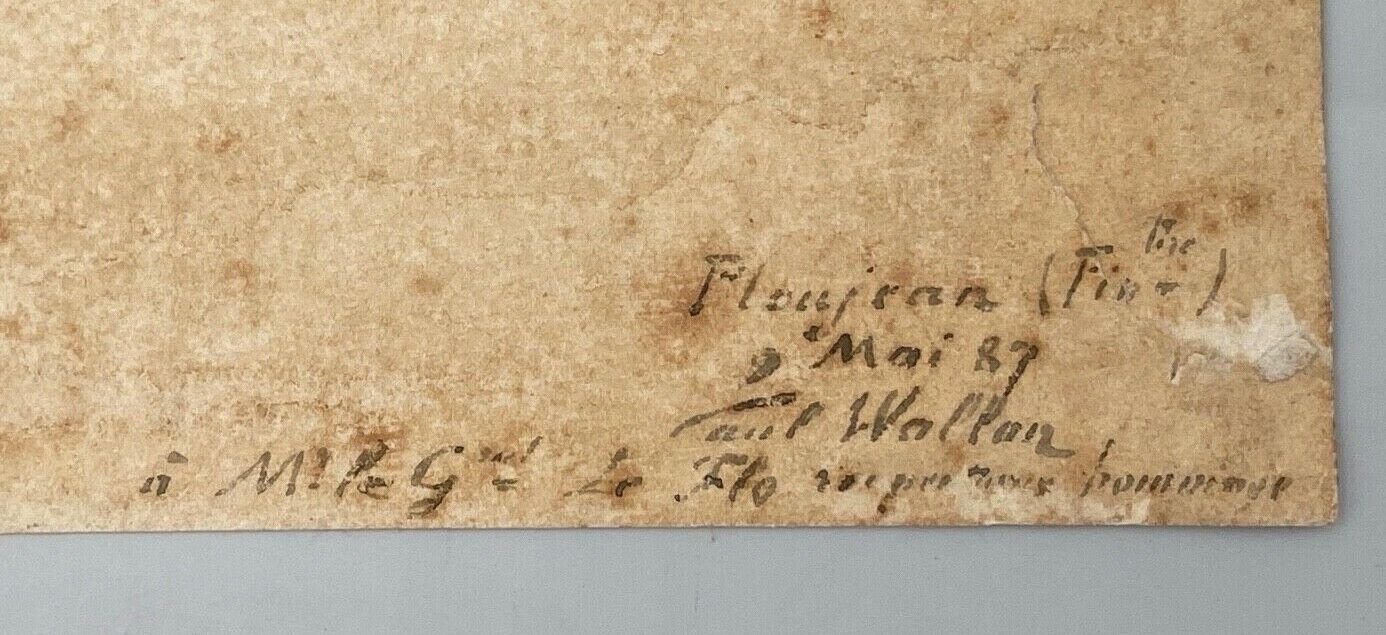 Ploujean (Fin^tre)
2 Mai 87
Paul Wallon
à Mr le G^ral Le Flo respectueux hommage